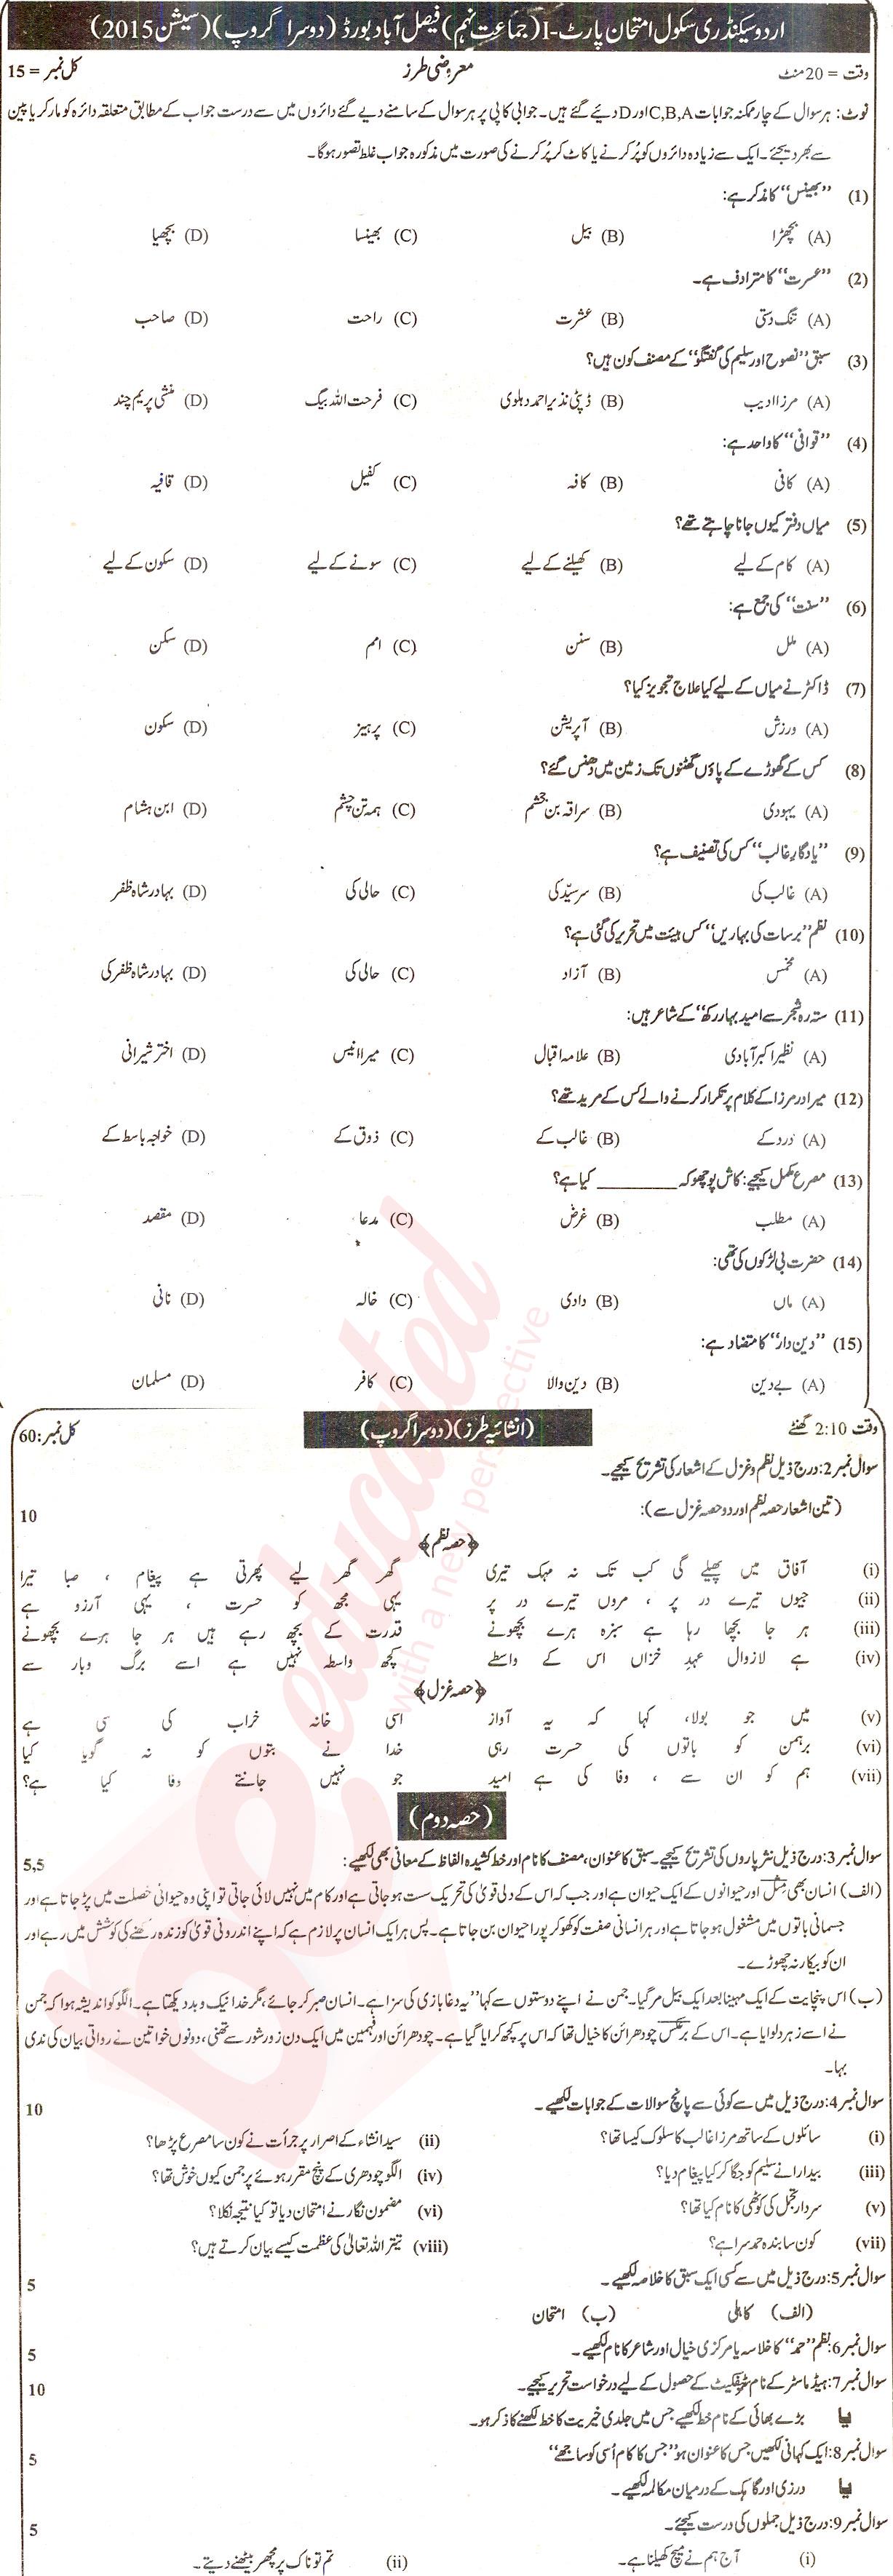 اردو سیکنڈری سکول امتحان پارٹ-I (جماعت نہم) فیصل آباد بورڈ (دوسرا گروپ) (سیشن 2015)
وقت = 20 منٹ معروضی طرز کل نمبر = 15
نوٹ: ہر سوال کے چار ممکنہ جوابات C,B,A اور D دیئے گئے ہیں۔ جوابی کاپی پر ہر سوال کے سامنے دیے گئے دائروں میں سے درست جواب کے مطابق متعلقہ دائرہ کو مارکر یا پین
سے بھر دیجئے۔ ایک سے زیادہ دائروں کو پُر کرنے یا کاٹ کر پُر کرنے کی صورت میں مذکورہ جواب غلط تصور ہوگا۔
(1) ”بھینس“ کا مذکر ہے:
(A) بچھڑا (B) بیل (C) بھینسا (D) بچھیا
(2) ”عسرت“ کا مترادف ہے۔
(A) تنگ دستی (B) عشرت (C) راحت (D) صاحب
(3) سبق ”نصوح اور سلیم کی گفتگو“ کے مصنف کون ہیں؟
(A) مرزا ادیب (B) ڈپٹی نذیر احمد دہلوی (C) فرحت اللہ بیگ (D) منشی پریم چند
(4) ”قوافی“ کا واحد ہے:
(A) کافی (B) کافہ (C) کفیل (D) قافیہ
(5) میاں دفتر کیوں جانا چاہتے تھے؟
(A) کام کے لیے (B) کھیلنے کے لیے (C) سونے کے لیے (D) سکون کے لیے
(6) ”سنت“ کی جمع ہے:
(A) ملل (B) سنن (C) امم (D) سکن
(7) ڈاکٹر نے میاں کے لیے کیا علاج تجویز کیا؟
(A) ورزش (B) آپریشن (C) پرہیز (D) سکون
(8) کس کے گھوڑے کے پاؤں گھٹنوں تک زمین میں دھنس گئے؟
(A) یہودی (B) سراقہ بن جخشم (C) ہمہ تن چشم (D) ابن ہشام
(9) ”یادگارِ غالب“ کس کی تصنیف ہے؟
(A) غالب کی (B) سرسیّد کی (C) حالی کی (D) بہادر شاہ ظفر
(10) نظم ”برسات کی بہاریں“ کس ہیئت میں تحریر کی گئی ہے؟
(A) مخمس (B) آزاد (C) حالی کی (D) بہادر شاہ ظفر کی
(11) ستہ رہ شجر سے امید بہار رکھ“ کے شاعر ہیں:
(A) نظیر اکبر آبادی (B) علامہ اقبال (C) میر انیس (D) اختر شیرانی
(12) میر اور مرزا کے کلام پر تکرار کرنے والے کس کے مرید تھے؟
(A) درد کے (B) غالب کے (C) ذوق کے (D) خواجہ باسط کے
(13) مصرع مکمل کیجیے: کاش پوچھو کہ ________ کیا ہے؟
(A) مطلب (B) غرض (C) مدعا (D) مقصد
(14) حضرت بی لڑکوں کی تھی:
(A) ماں (B) دادی (C) خالہ (D) نانی
(15) ”دین دار“ کا متضاد ہے:
(A) بے دین (B) دین والا (C) کافر (D) مسلمان
وقت 2:10 گھنٹے (انشائیہ طرز) (دوسرا گروپ) کل نمبر: 60
سوال نمبر 2: درج ذیل نظم و غزل کے اشعار کی تشریح کیجیے۔
(تین اشعار حصہ نظم اور دو حصہ غزل سے): 10
﴿حصہ نظم﴾
(i) آفاق میں پھیلے گی کب تک نہ مہک تیری گھر گھر لیے پھرتی ہے پیغام ، صبا تیرا
(ii) جیوں تیرے در پر ، مروں تیرے در پر یہی مجھ کو حسرت ، یہی آرزو ہے
(iii) ہر جا بچھا رہا ہے سبزہ ہرے بچھونے قدرت کے بچھ رہے ہیں ہر جا ہرے بچھونے
(iv) ہے لازوال عہدِ خزاں اس کے واسطے کچھ واسطہ نہیں ہے اسے برگ وبار سے
﴿حصہ غزل﴾
(v) میں جو بولا، کہا کہ یہ آواز اسی خانہ خراب کی سی ہے
(vi) برہمن کو باتوں کی حسرت رہی خدا نے بتوں کو نہ گویا کیا
(vii) ہم کو ان سے ، وفا کی ہے امید جو نہیں جانتے وفا کیا ہے؟
(حصہ دوم)
سوال نمبر 3: درج ذیل نثر پاروں کی تشریح کیجیے۔ سبق کا عنوان، مصنف کا نام اور خط کشیدہ الفاظ کے معانی بھی لکھیے: 5,5
(الف) انسان بھی مثل اور حیوانوں کے ایک حیوان ہے اور جب کہ اس کے دلی قویٰ کی تحریک سست ہو جاتی ہے اور کام میں نہیں لائی جاتی تو اپنی وہ حیوانی خصلت میں پڑ جاتا ہے اور
جسمانی باتوں میں مشغول ہو جاتا ہے اور ہر انسانی صفت کو کھو کر پورا حیوان بن جاتا ہے۔ پس ہر ایک انسان پر لازم ہے کہ اپنے اندرونی قویٰ کو زندہ رکھنے کی کوشش میں رہے اور
ان کو بیکار نہ چھوڑے۔
(ب) اس پنچایت کے ایک مہینا بعد ایک بیل مر گیا۔ جمن نے اپنے دوستوں سے کہا ”یہ دغا بازی کی سزا ہے۔ انسان صبر کر جائے، مگر خدا نیک و بد دیکھتا ہے۔ الگو کو اندیشہ ہوا کہ جمن
نے اسے زہر دلوایا ہے۔ اس کے برعکس چودھرائن کا خیال تھا کہ اس پر کچھ کرایا گیا ہے۔ چودھرائن اور فہمین میں ایک دن زور شور سے ٹھنی، دونوں خواتین نے روانی بیان کی ندی
بہا۔
سوال نمبر 4: درج ذیل میں سے کوئی سے پانچ سوالات کے جوابات لکھیے۔ 10
(i) سائلوں کے ساتھ مرزا غالب کا سلوک کیسا تھا؟ (ii) سید انشاء کے اصرار پر جرأت نے کون سا مصرع پڑھا؟
(iii) بیدارا نے سلیم کو جگا کر کیا پیغام دیا؟ (iv) الگو چودھری کے پنچ مقرر ہونے پر جمن کیوں خوش تھا؟
(v) سردار تجمل کی کوٹھی کا نام کیا تھا؟ (vi) مضمون نگار نے امتحان دیا تو کیا نتیجہ نکلا؟
(vii) کون سا بندہ حمد سرا ہے؟ (viii) تیتر اللہ تعالیٰ کی عظمت کیسے بیان کرتے ہیں؟
سوال نمبر 5: درج ذیل میں سے کسی ایک سبق کا خلاصہ لکھیے۔ 5
(الف) کاہلی (ب) امتحان
سوال نمبر 6: نظم ”حمد“ کا خلاسہ یا مرکزی خیال اور شاعر کا نام لکھیے۔ 5
سوال نمبر 7: ہیڈ ماسٹر کے نام سرٹیفکیٹ کے حصول کے لیے درخواست تحریر کیجیے۔ 10
یا بڑے بھائی کے نام خط لکھیے جس میں جلدی خیریت کا خط لکھنے کا ذکر ہو۔
سوال نمبر 8: ایک کہانی لکھیں جس کا عنوان ہو ”جس کا کام اُسی کو ساجھے“ 5
یا درزی اور گاہک کے درمیان مکالمہ لکھیے۔
سوال نمبر 9: درج ذیل جملوں کی درست کیجئے۔ 5
(i) آج ہم نے میچ کھیلنا ہے۔ (ii) تم تو ناک پر مچھر بیٹھنے دیتے۔
beeducated
with a new perspective